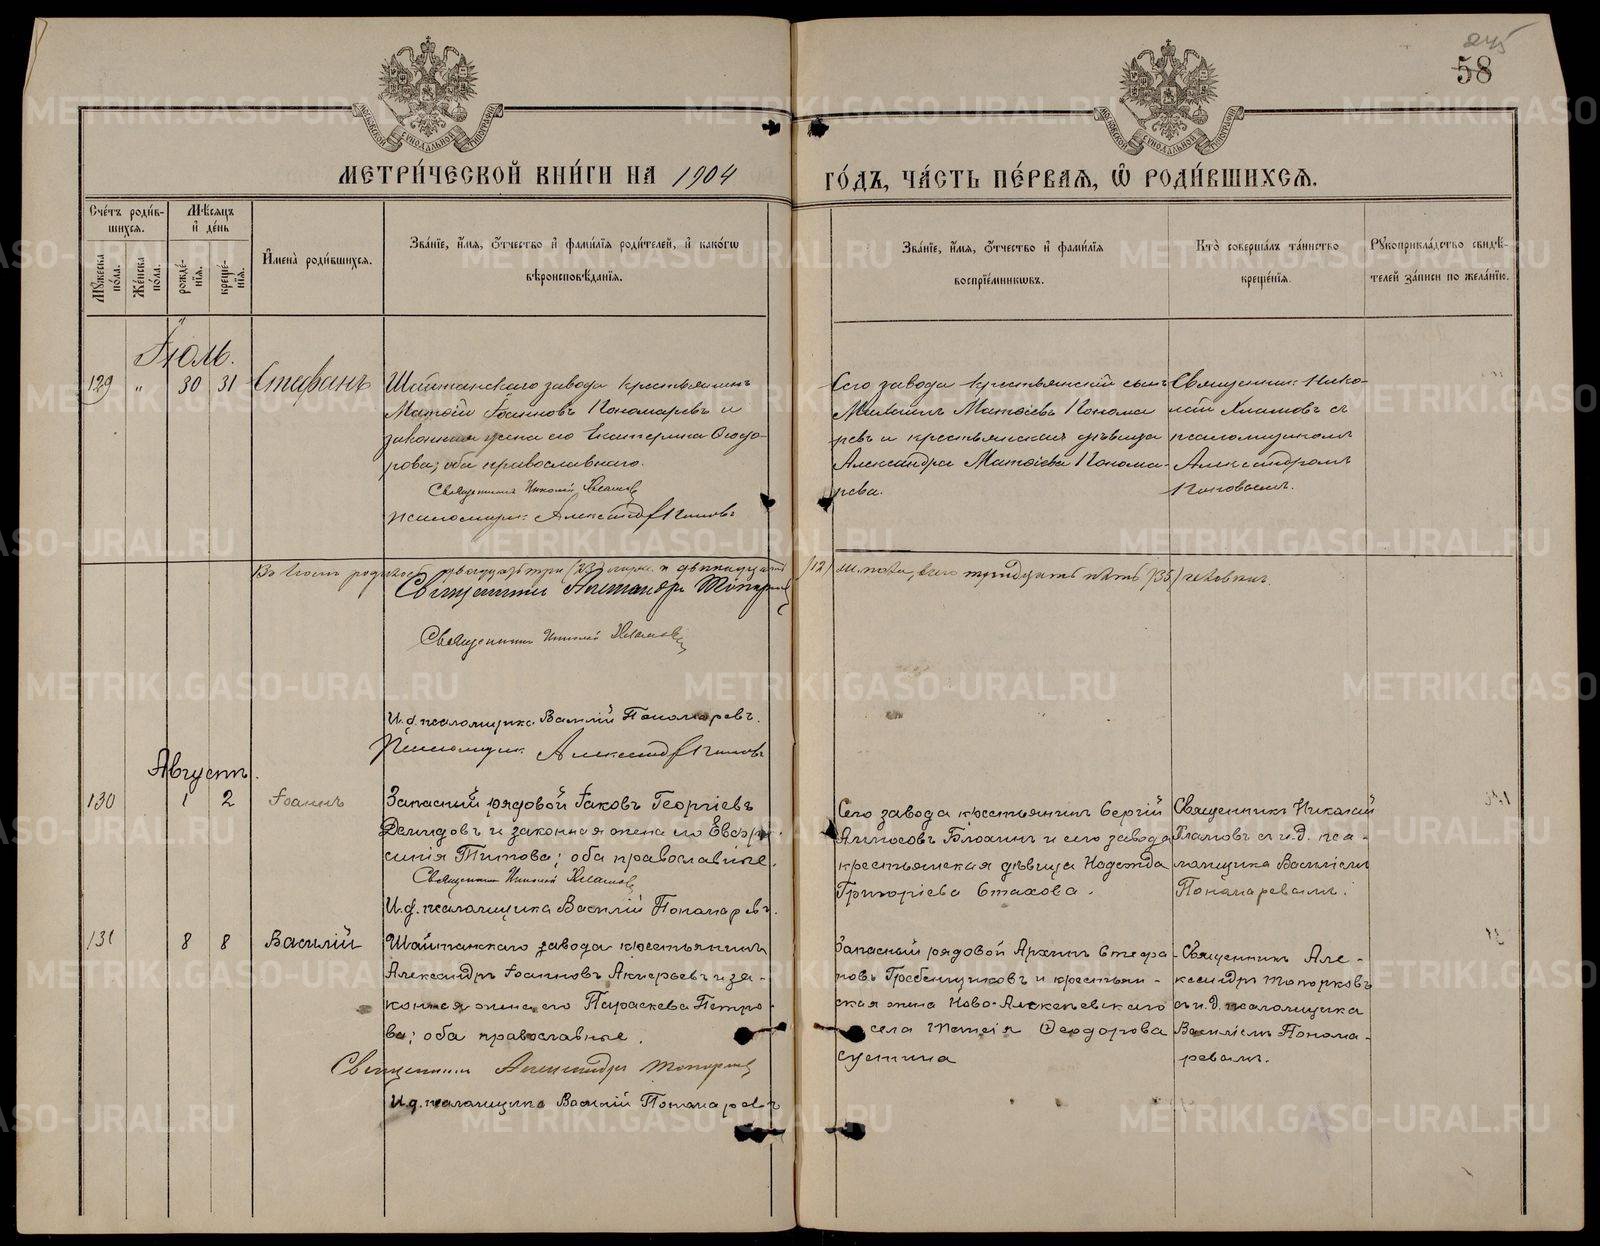 245
58
МЕТРИ́ЧЕСКОЙ КНИ́ГИ НА 1904
ГО́ДЪ, ЧА́СТЬ ПЕ́РВАѦ, Ѡ҆ РОДИ́ВШИХСѦ.
Сче́тъ роди́в-
шихсѧ.
Мѣ́сѧцъ
и҆ де́нь
Мꙋ́жеска по́ла.
Же́нска по́ла.
рожде́-
нїѧ.
креще́-
нїѧ.
И҆мена̀ роди́вшихсѧ.
Зва́нїе, и҆́мѧ, ѻ҆́тчество и҆ фами́лїѧ роди́телей, и҆ како́гѡ
вѣроисповѣ́данїѧ.
Зва́нїе, и҆́мѧ, ѻ҆́тчество и҆ фами́лїѧ
воспрїе́мникѡвъ.
Кто̀ соверша́лъ та́инство
креще́нїѧ.
Рꙋкоприкла́дство свидѣ́-
телей за́писи по жела́нїю.
Іюль.
129 " 30 31 Стефанъ
Шайтанскаго завода крестьянинъ
Матѳій Іоанновъ Пономаревъ и
законная жена его Екатерина Ѳеодо-
рова; оба православнаго.
Священникъ Николай Хламовъ
Псаломщикъ Александръ Поповъ
Сего завода крестьянскій сынъ
Михаилъ Матѳіевъ Понома
ревъ и крестьянская дѣвица
Александра Матѳіева Понома-
рева.
Священникъ Нико-
лай Хламовъ съ
псаломщикомъ
Александромъ
Поповымъ.
двадцать три (23) и двѣнадцать
(12) всего тридцать пять (35) человѣкъ.
Священникъ Александръ Топорковъ
Священникъ Николай Хламовъ
И.д. псаломщика Василій Пономаревъ.
Псаломщикъ Александръ Поповъ
Августъ.
130 1 2 Іоаннъ
Запасный рядовой Іаковъ Георгіевъ
Демидовъ и законная жена его Евфро-
синія Титова; оба православные.
Священникъ Николай Хламовъ
И.д. псаломщика Василій Пономаревъ.
Сего завода крестьянинъ Сергій
Блохинъ и сего завода
крестьянская дѣвица Надежда
Григоріева Стахова.
Священникъ Николай
Хламовъ съ и.д. пса-
ломщика Василіемъ
Пономаревымъ.
131 8 8 Василій
Шайтанскаго завода крестьянинъ
Александръ Іоанновъ и за-
конная жена его Параскева Петро-
ва; оба православные.
Священникъ Александръ Топорковъ
И.д. псаломщика Василій Пономаревъ
Запасный рядовой Архипъ Стефа
новъ Гребенщиковъ и крестьян-
ская жена Ново-Алексѣевскаго
села Ѳеодорова
Священникъ Але-
ксандръ Топорковъ
съ и.д. псаломщика
Василіемъ Понома-
ревымъ.
METRIKI.GASO-URAL.RU